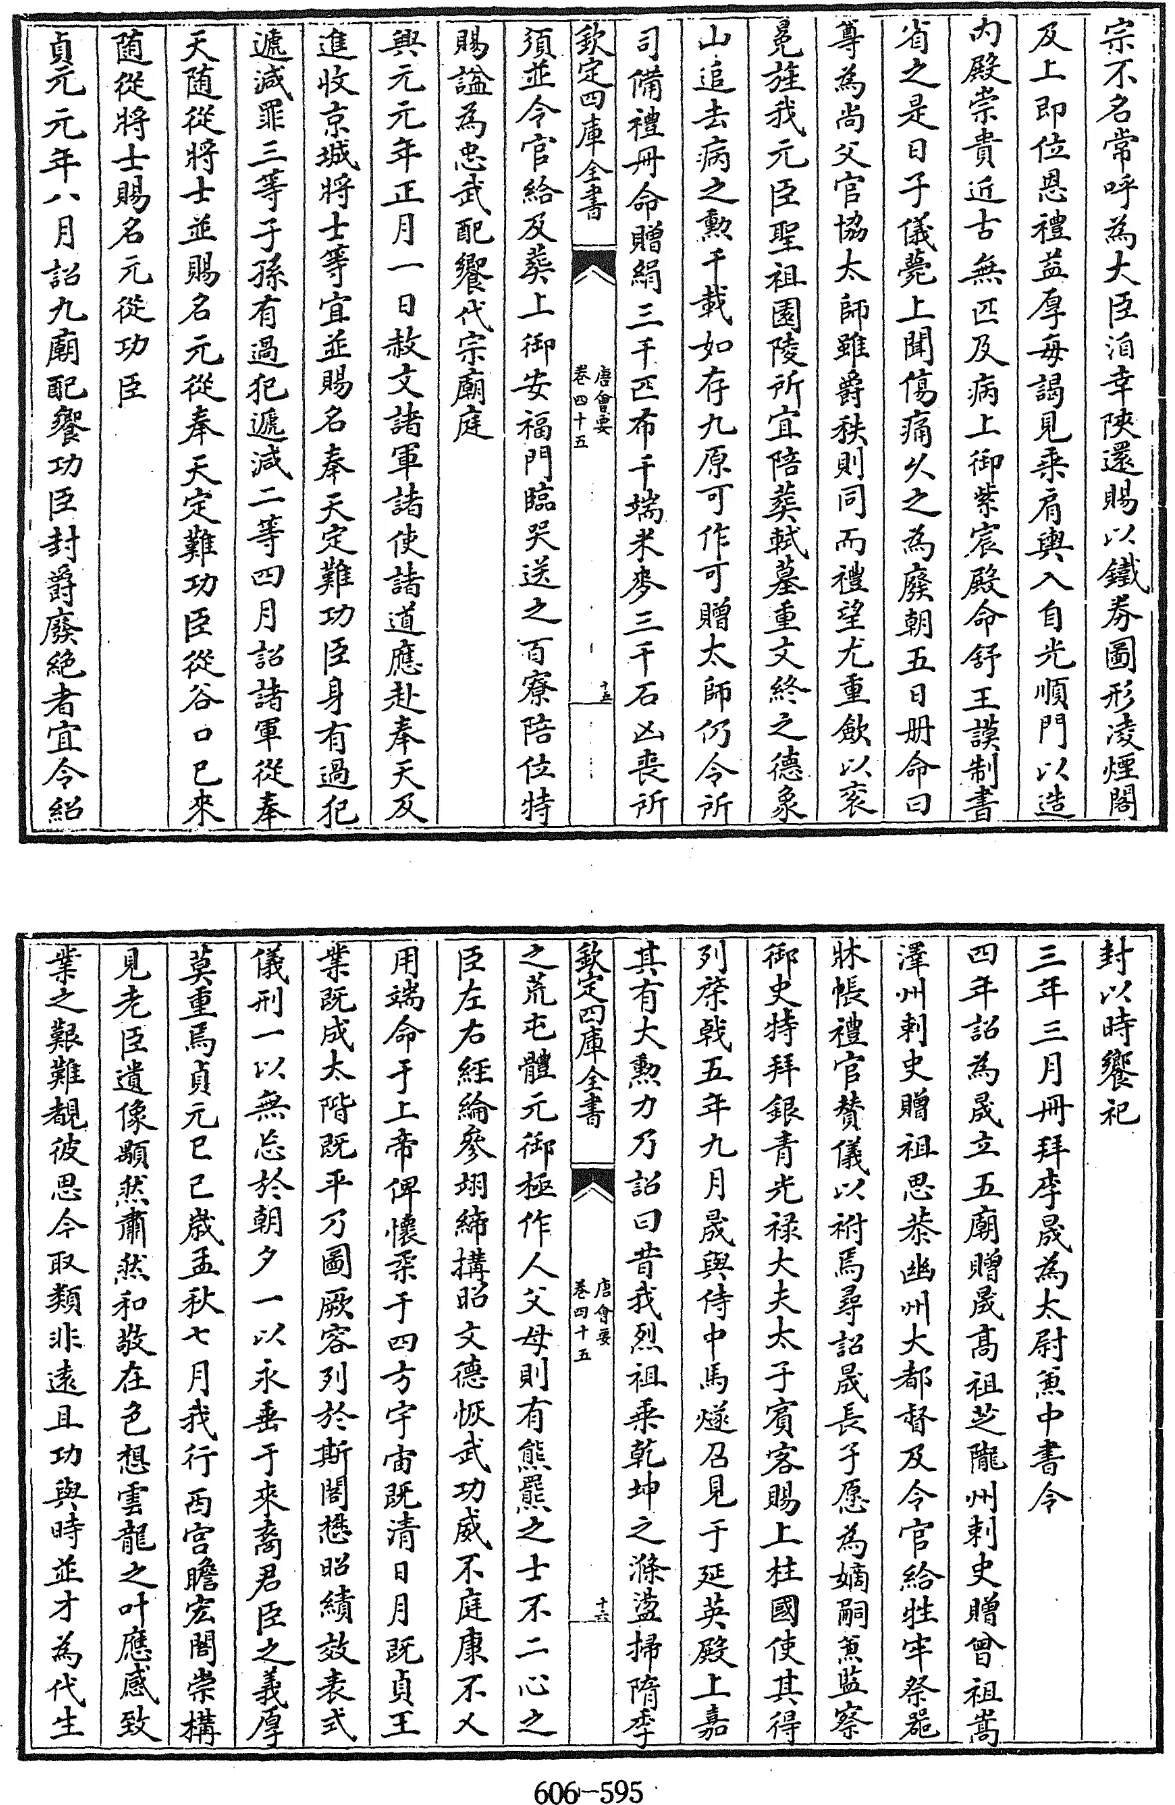 宗不名常呼為大臣洎幸陜還賜以鐵券圖形凌煙閣
及上即位恩禮益厚每謁見乘肩輿入自光順門以造
内殿崇貴近古無匹及病上御紫宸殿命舒王謨制書
省之是日子儀薨上聞傷痛乆之為廢朝五日册命曰
尊為尚父官協太師雖爵秩則同而禮望尤重斂以衮
冕旌我元臣聖祖園陵所宜陪葬軾墓重文終之德象
山追去病之勲千載如存九原可作可贈太師仍令所
司備禮冊命贈絹三千匹布千端米麥三千石凶喪所
欽定四庫全書
唐會要
卷四十五
十五
須並令官給及葬上御安福門臨哭送之百寮陪位特
賜諡為忠武配饗代宗廟庭
興元元年正月一日赦文諸軍諸使諸道應赴奉天及
進收京城將士等宜並賜名奉天定難功臣身有過犯
遞減罪三等子孫有過犯遞減二等四月詔諸軍從奉
天隨從將士並賜名元從奉天定難功臣從谷口已來
隨從將士賜名元從功臣
貞元元年八月詔九廟配饗功臣封爵廢絶者宜令紹
封以時饗祀
三年三月冊拜李晟為太尉兼中書令
四年詔為晟立五廟贈晟髙祖芝隴州刺史贈曾祖嵩
澤州刺史贈祖思恭幽州大都督及令官給牲牢祭器
牀帳禮官贊儀以祔焉尋詔晟長子愿為嫡嗣兼監察
御史特拜銀青光禄大夫太子賓客賜上柱國使其得
列棨戟五年九月晟與侍中馬燧召見于延英殿上嘉
其有大勲力乃詔曰昔我烈祖乘乾坤之滌盪掃隋季
欽定四庫全書
唐會要
卷四十五
十六
之荒屯體元御極作人父母則有熊羆之士不二心之
臣左右經綸參翊締搆昭文德恢武功威不庭康不乂
用端命于上帝俾懷柔于四方宇宙既清日月既貞王
業既成太階既平乃圖厥容列於斯閣懋昭績效表式
儀刑一以無忘於朝夕一以永垂于來裔君臣之義厚
莫重焉貞元己巳歳孟秋七月我行西宫瞻宏閣崇構
見老臣遺像顒然肅然和敬在色想雲龍之叶應感致
業之艱難覩彼思今取類非遠且功與時並才為代生
606-595